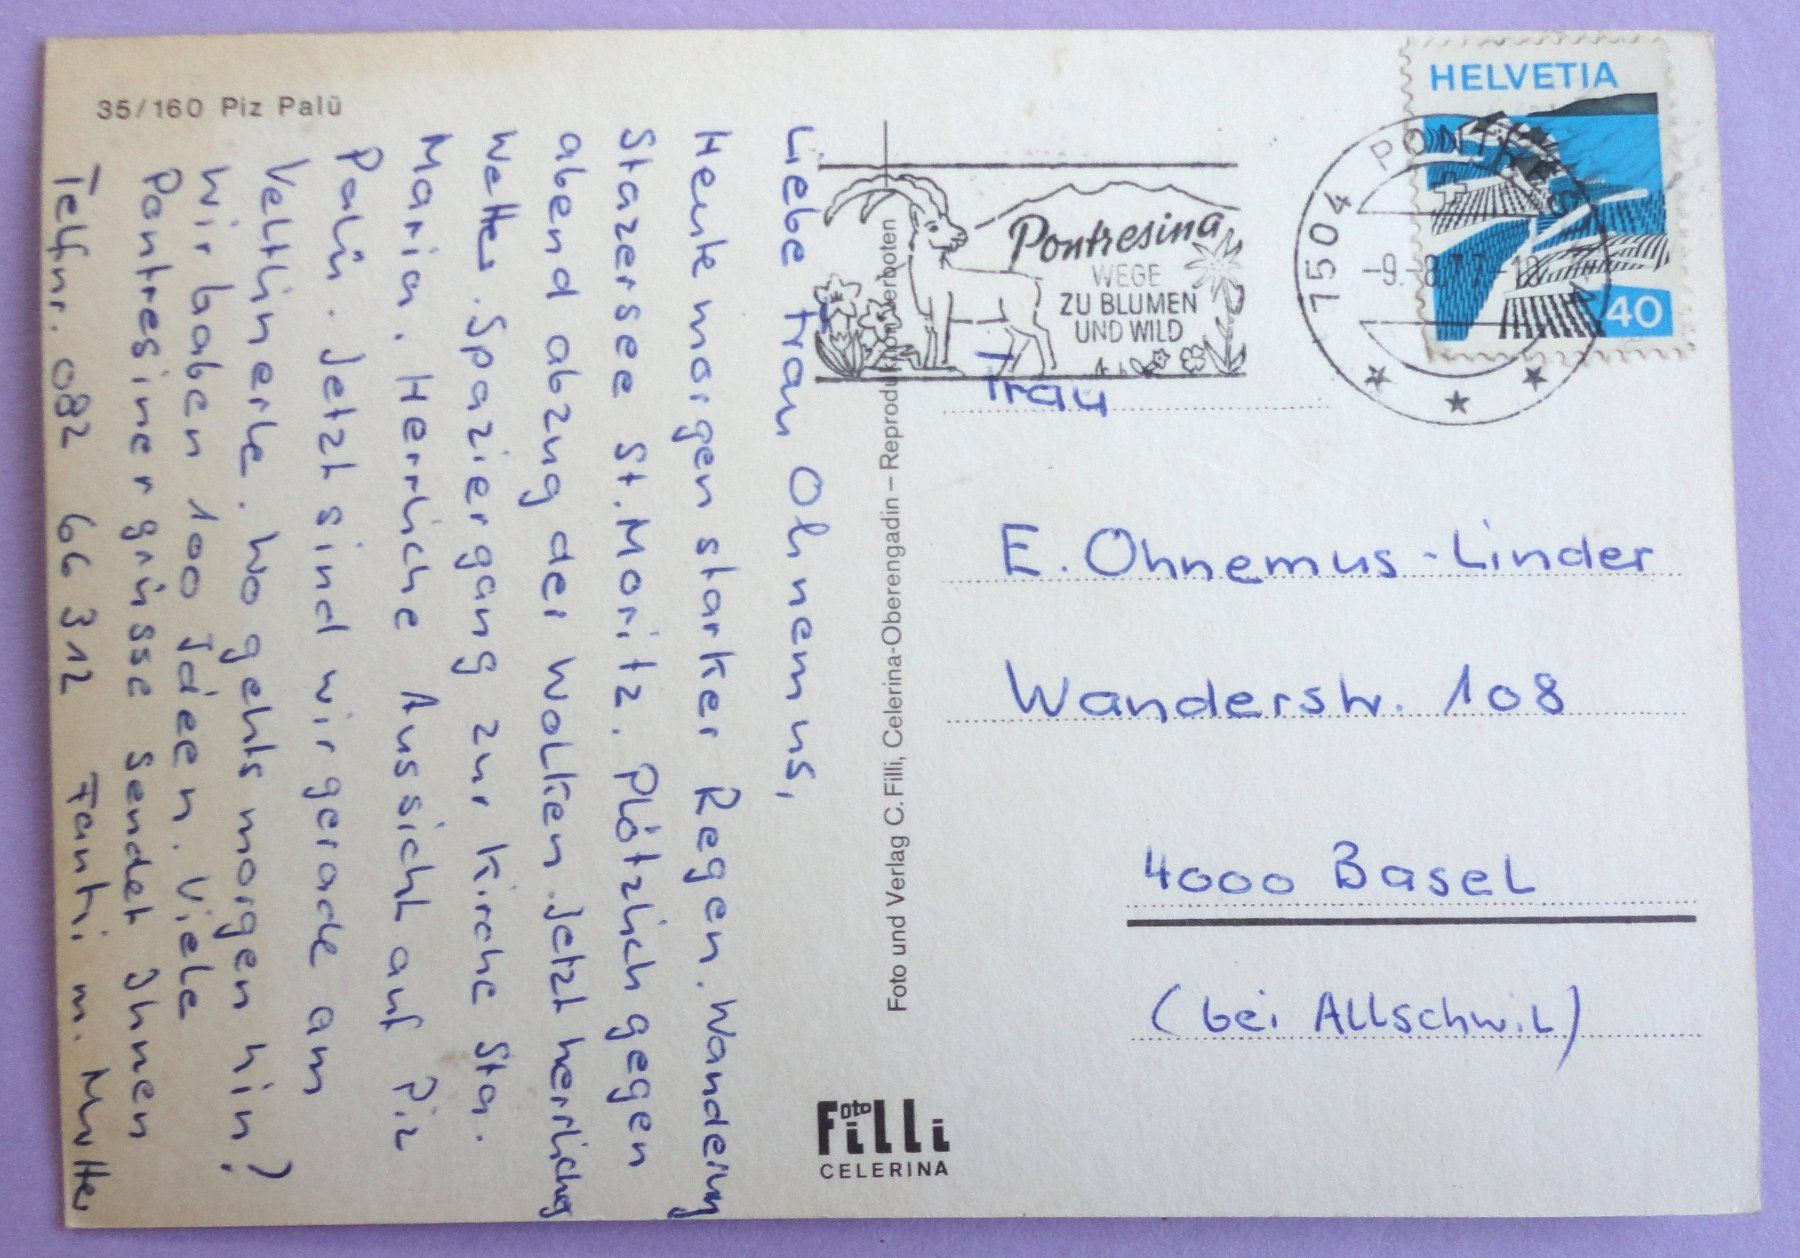 35/160 Piz Palü
Liebe Frau Ohnemus,
Heute morgen starker Regen. Wanderung
Stazersee St. Moritz. Plötzlich gegen
abend abzug der Wolken. Jetzt herrliches
Wetter. Spaziergang zur Kirche Sta.
Maria. Herrliche Aussicht auf Piz
Palü. Jetzt sind wir gerade am
Veltlinerle. Wo gehts morgen hin?
Wir haben 100 Ideen. Viele
Pontresinergrüsse sendet Ihnen
Telfnr. 082 66 312 Fanti m. Mutter
Foto und Verlag C. Filli, Celerina-Oberengadin – Reproduktion verboten
Pontresina
WEGE
ZU BLUMEN
UND WILD
7504 PONTRESINA
-9.-8.77-18
HELVETIA
40
Frau
E. Ohnemus-Linder
Wanderstr. 108
4000 Basel
(bei Allschwil)
Foto
Filli
CELERINA